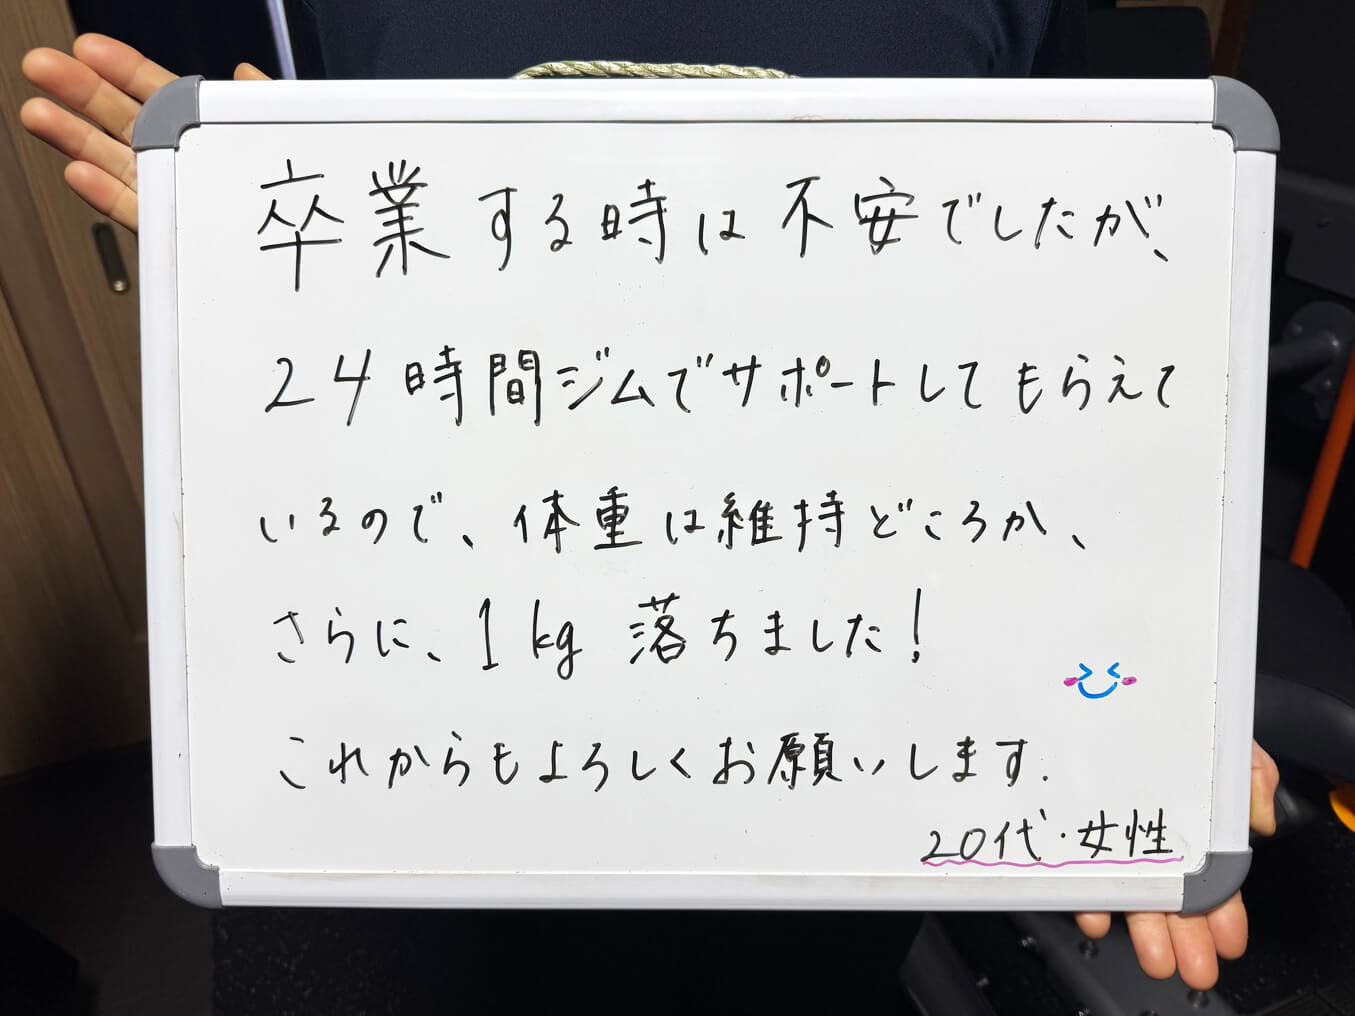 卒業する時は不安でしたが、
24時間ジムでサポートしてもらえて
いるので、体重は維持どころか、
さらに、1kg 落ちました!
これからもよろしくお願いします.
20代・女性